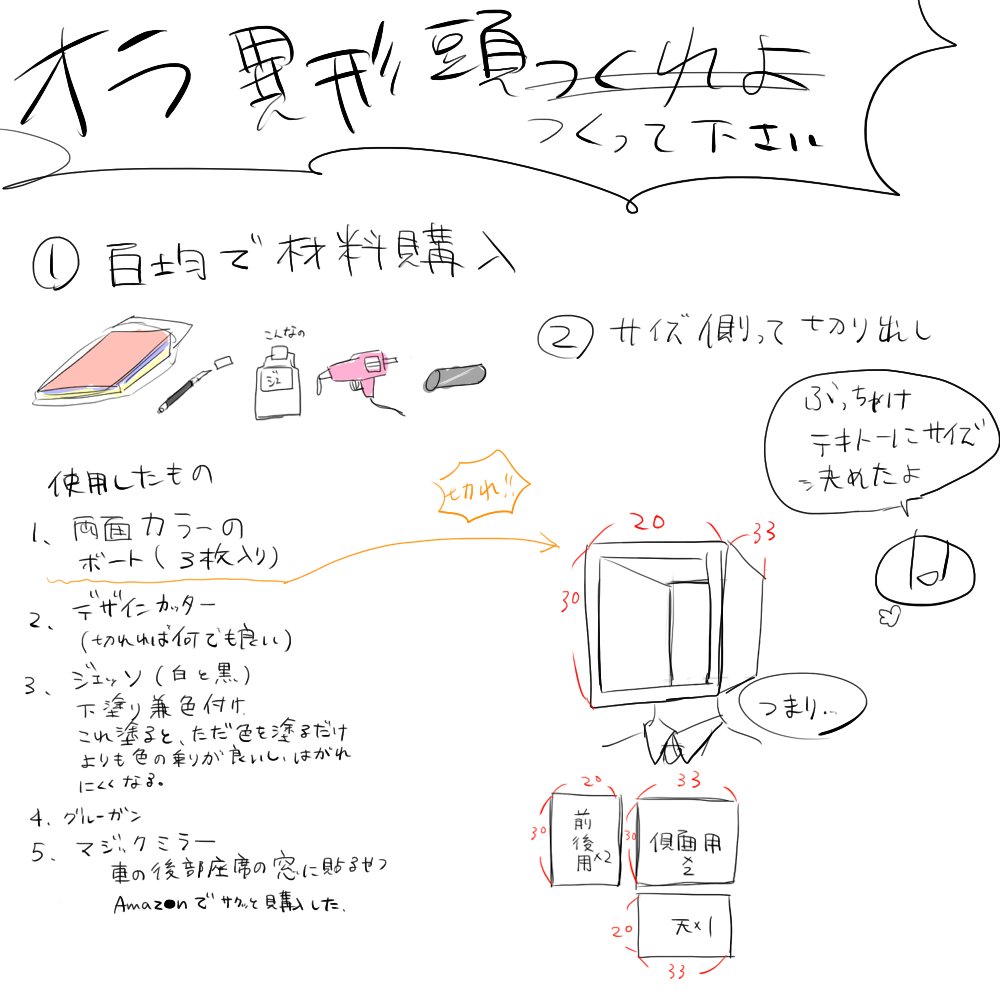 オラ異形頭つくれよ
つくって下さい
① 百均で材料購入
こんなの
ジェ
使用したもの
1、両面カラーの
ボート(3枚入り)
2、デザインカッター
(切れれば何でも良い)
3、ジェッソ(白と黒)
下塗り兼色付け
これ塗ると、ただ色を塗るだけ
よりも色の乗りが良いし、はがれ
にくくなる。
4、グルーガン
5、マジックミラー
車の後部座席の窓に貼るやつ
Amazonでサクッと購入した。
切れ!!
② サイズ側って切り出し
ぶっちゃけ
テキトーにサイズ
決めたよ
20
33
30
つまり…
20
30
前後用×2
33
30
側面用
×2
20
天×1
33